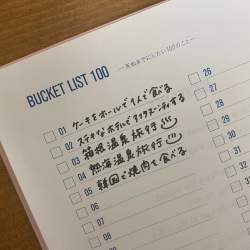 BUCKET LIST 100
―死ぬまでにしたい100のこと―
01 ケーキをホールで1人で食べる
02 ステキなホテルでアフタヌーンティする
03 箱根温泉旅行
04 熱海温泉旅行
05 韓国で焼肉を食べる
06
07
08
26
27
28
29
30
31
32
33